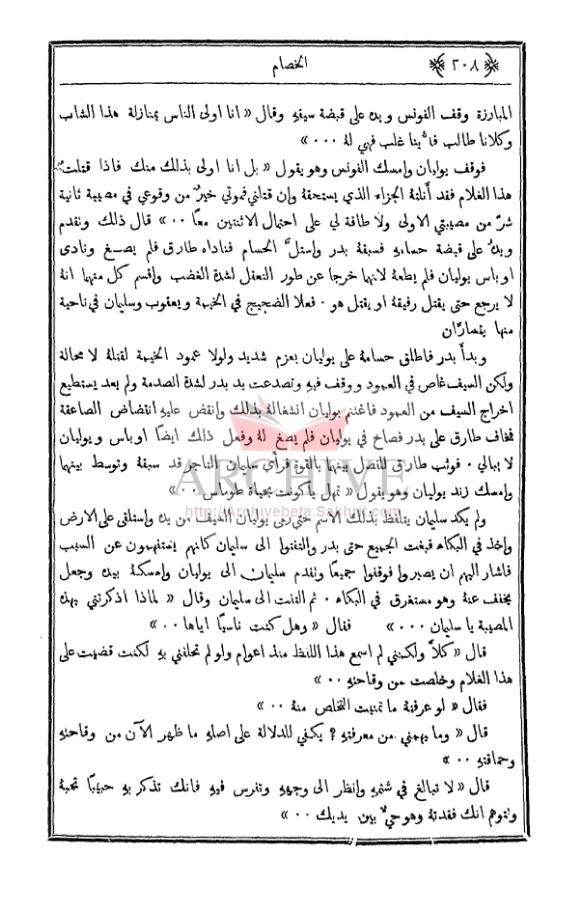 ٢٠٨ الخصام
المبارزة وقف الفونس ويده على قبضة سيفهِ وقال « انا اولى الناس بمنازلة هذا الشاب
وكلانا طالب فأَينا غلب فهي لهُ ٠٠٠ »
فوقف يوليان وامسك الفونس وهو يقول « بل انا اولى بذلك منك فاذا قتلتُ
هذا الغلام فقد أَنلتهُ الجزاء الذي يستحقهُ وإن قتلني فموتي خيرٌ من وقوعي في مصيبة ثانية
شرّ من مصيبتي الاولى ولا طاقة لي على احتمال الاثنتين معًا ٠٠ » قال ذلك وتقدم
ويدهُ على قبضة حسامهِ فسبقهُ بدر واستلَّ الحسام فناداه طارق فلم يصغ ونادى
اوباس يوليان فلم يطعهُ لانهما خرجا عن طور التعقل لشدة الغضب واقسم كل منهما انهُ
لا يرجع حتى يقتل رفيقهُ او يقتل هو ٠ فعلا الضجيج في الخيمة ويعقوب وسليمان في ناحية
منها يتسارّان
وبدأَ بدر فاطلق حسامهُ على يوليان بعزم شديد ولولا عمود الخيمة لقتلهُ لا محالة
ولكن السيف غاص في العمود ووقف فيهِ وتصدعت يد بدر لشدة الصدمة ولم يعد يستطيع
اخراج السيف من العمود فاغتنم يوليان انشغالهُ بذلك وانقض عليهِ انقضاض الصاعقة
فخاف طارق على بدر فصاح في يوليان فلم يصغ لهُ وفعل ذلك ايضًا اوباس ويوليان
لا يبالي ٠ فوثب طارق للفصل بينهما بالقوة فرأى سليمان التاجر قد سبقهُ وتوسط بينهما
وامسك زند يوليان وهو يقول « تمهل ياكونت بحياة طوماس ٠٠ »
ARCHIVE
http://Archivebeta.Sakhrit.com
ولم يكد سليمان يتلفظ بذلك الاسم حتى رمى يوليان السيف من يده واستلقى على الارض
واخذ في البكاء فبغت الجميع حتى بدر والتفتوا الى سليمان كانهم يستفهمون عن السبب
فاشار اليهم ان يصبروا فوقفوا جميعًا وتقدم سليمان الى يوليان وامسكهُ بيده وجعل
يخفف عنهُ وهو مستغرق في البكاء ٠ ثم التفت الى سليمان وقال « لماذا اذكرتني بهذه
المصيبة يا سليمان ٠٠٠ » فقال « وهل كنت ناسيًا اياها ٠٠ »
قال « كلاَّ ولكنني لم اسمع هذا اللفظ منذ اعوام ولو لم تحلفني بهِ لكنت قضيت على
هذا الغلام وخلصت من وقاحتهِ ٠٠ »
فقال « لو عرفتهُ ما تمنيت التخلص منهُ ٠٠ »
قال « وما يهمني من معرفتهِ ? يكفي للدلالة على اصلهِ ما ظهر الآن من وقاحتهِ
وحماقتهِ ٠٠ »
قال « لا تبالغ في شتمهِ وانظر الى وجههِ وتفرس فيهِ فانك تذكر بهِ حبيبًا تحبهُ
وتتوهم انك فقدتهُ وهو حيٌّ بين يديك ٠٠ »